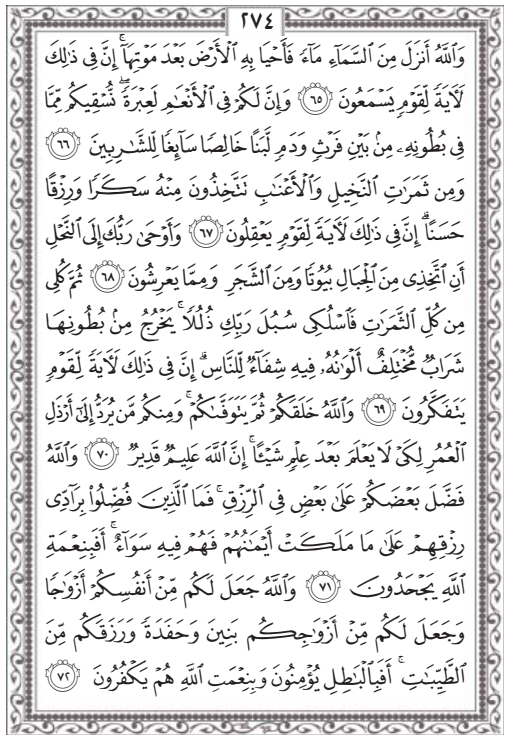 ٢٧٤
وَٱللَّهُ أَنزَلَ مِنَ ٱلسَّمَآءِ مَآءً فَأَحْيَا بِهِ ٱلْأَرْضَ بَعْدَ مَوْتِهَآ ۚ إِنَّ فِى ذَٰلِكَ
لَـَٔايَةً لِّقَوْمٍ يَسْمَعُونَ ٦٥ وَإِنَّ لَكُمْ فِى ٱلْأَنْعَـٰمِ لَعِبْرَةً ۖ نُّسْقِيكُم مِّمَّا
فِى بُطُونِهِۦ مِنۢ بَيْنِ فَرْثٍ وَدَمٍ لَّبَنًا خَالِصًا سَآئِغًا لِّلشَّـٰرِبِينَ ٦٦
وَمِن ثَمَرَٰتِ ٱلنَّخِيلِ وَٱلْأَعْنَـٰبِ تَتَّخِذُونَ مِنْهُ سَكَرًا وَرِزْقًا
حَسَنًا ۗ إِنَّ فِى ذَٰلِكَ لَـَٔايَةً لِّقَوْمٍ يَعْقِلُونَ ٦٧ وَأَوْحَىٰ رَبُّكَ إِلَى ٱلنَّحْلِ
أَنِ ٱتَّخِذِى مِنَ ٱلْجِبَالِ بُيُوتًا وَمِنَ ٱلشَّجَرِ وَمِمَّا يَعْرِشُونَ ٦٨ ثُمَّ كُلِى
مِن كُلِّ ٱلثَّمَرَٰتِ فَٱسْلُكِى سُبُلَ رَبِّكِ ذُلُلًا ۚ يَخْرُجُ مِنۢ بُطُونِهَا
شَرَابٌ مُّخْتَلِفٌ أَلْوَٰنُهُۥ فِيهِ شِفَآءٌ لِّلنَّاسِ ۗ إِنَّ فِى ذَٰلِكَ لَـَٔايَةً لِّقَوْمٍ
يَتَفَكَّرُونَ ٦٩ وَٱللَّهُ خَلَقَكُمْ ثُمَّ يَتَوَفَّىٰكُمْ ۚ وَمِنكُم مَّن يُرَدُّ إِلَىٰٓ أَرْذَلِ
ٱلْعُمُرِ لِكَىْ لَا يَعْلَمَ بَعْدَ عِلْمٍ شَيْـًٔا ۚ إِنَّ ٱللَّهَ عَلِيمٌ قَدِيرٌ ٧٠ وَٱللَّهُ
فَضَّلَ بَعْضَكُمْ عَلَىٰ بَعْضٍ فِى ٱلرِّزْقِ ۚ فَمَا ٱلَّذِينَ فُضِّلُوا۟ بِرَآدِّى
رِزْقِهِمْ عَلَىٰ مَا مَلَكَتْ أَيْمَـٰنُهُمْ فَهُمْ فِيهِ سَوَآءٌ ۚ أَفَبِنِعْمَةِ
ٱللَّهِ يَجْحَدُونَ ٧١ وَٱللَّهُ جَعَلَ لَكُم مِّنْ أَنفُسِكُمْ أَزْوَٰجًا
وَجَعَلَ لَكُم مِّنْ أَزْوَٰجِكُم بَنِينَ وَحَفَدَةً وَرَزَقَكُم مِّنَ
ٱلطَّيِّبَـٰتِ ۚ أَفَبِٱلْبَـٰطِلِ يُؤْمِنُونَ وَبِنِعْمَتِ ٱللَّهِ هُمْ يَكْفُرُونَ ٧٢